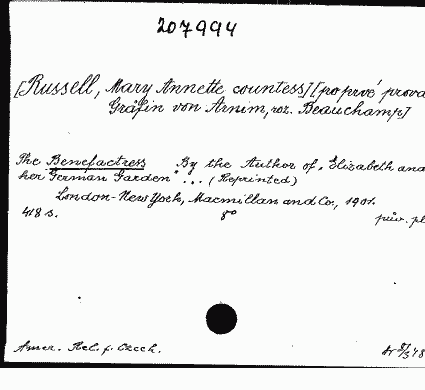 207994
[Russell, Mary Annette countess] [po prvé prova
Gräfin von Arnim, roz. Beauchamp]
The Benefactress By the Author of „Elizabeth and
her German Garden" ... (Reprinted)
London - New York, Macmillan and Co., 1901.
418 s. 8° pův. pl
Amer. Rel. f. Czech.